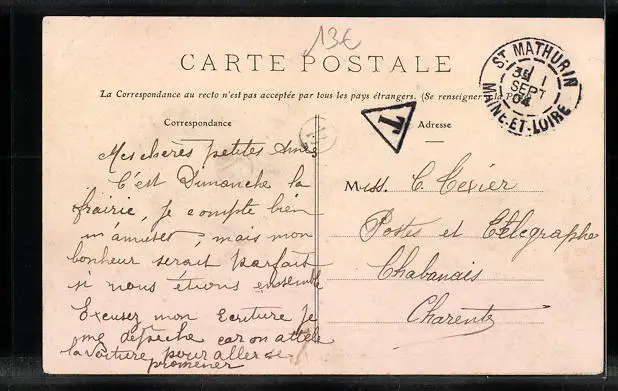 13€
CARTE POSTALE
La Correspondance au recto n'est pas acceptée par tous les pays étrangers. (Se renseigner à la Poste
Correspondance
Adresse
ST MATHURIN
1
SEPT
04
MAINE-ET-LOIRE
T
Mes chères petites Amies
C'est Dimanche la
frairie, je compte bien
m'amuser, mais mon
bonheur serait parfait
si nous étions ensemble
Excusez mon Ecriture je
me dépêche car on attèle
la voiture pour aller se
promener
Miss. C. Texier
Postes et Télégraphe
Chabanais
Charente